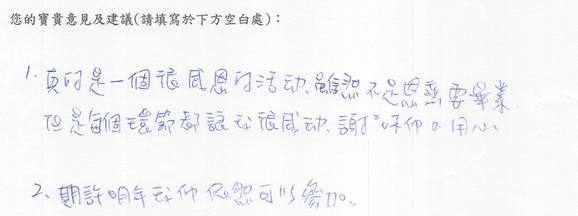 您的寶貴意見及建議(請填寫於下方空白處)：
1. 真的是一個很感恩的活动、雖然不是恩森要畢業、
但是每個環節都讓我很感动、謝謝妳們的用心
2、期許明年我們依然可以參加。